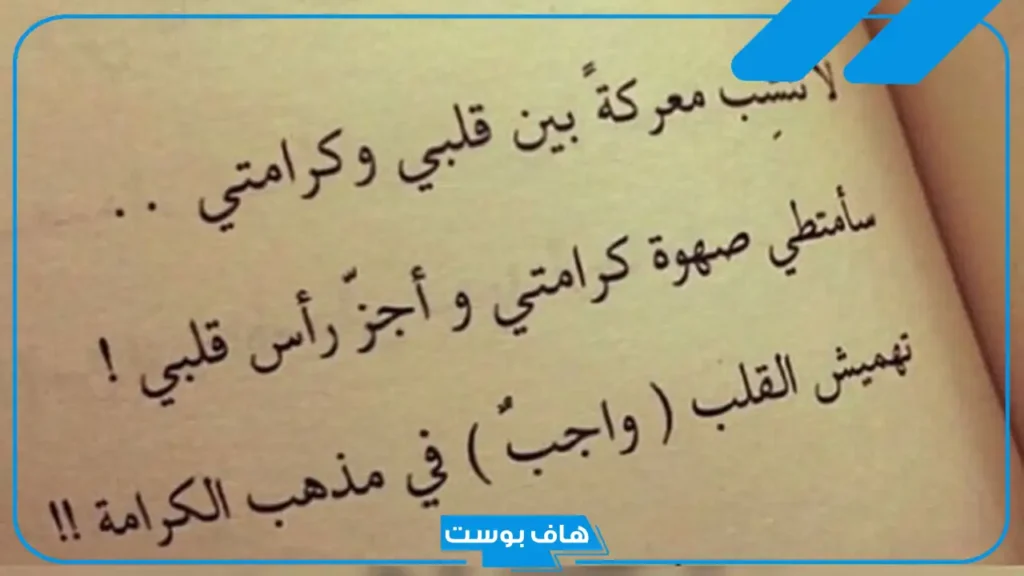 لا تنشِب معركةً بين قلبي وكرامتي . .
سأمتطي صهوة كرامتي و أجزّ رأس قلبي !
تهميش القلب ( واجبٌ ) في مذهب الكرامة !!
هاف بوست